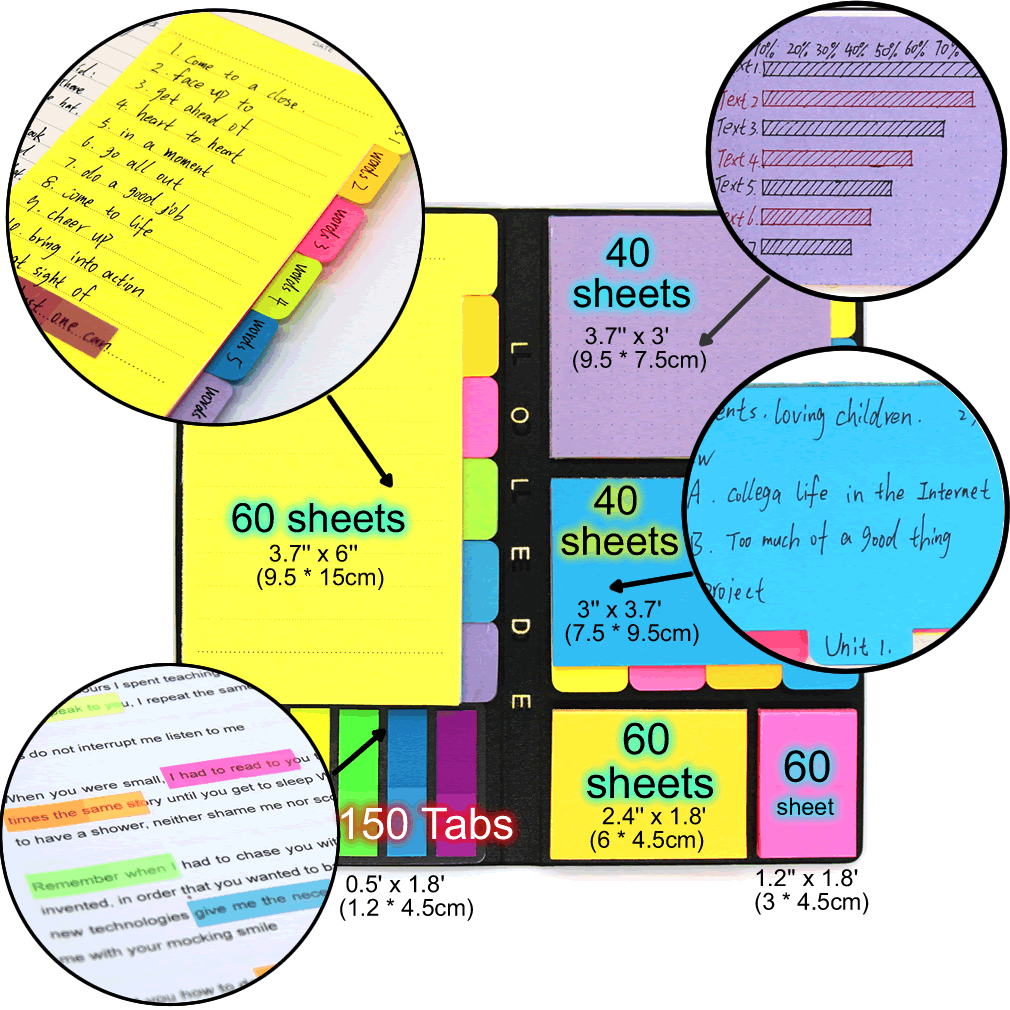 DATE
1. Come to a close.
2. face up to
3. get ahead of
4. heart to heart
5. in a moment
6. go all out
7. do a good job
8. come to life
9. cheer up
10. bring into action
sight of
one can
words 2
words 3
words 4
words 5
words
10% 20% 30% 40% 50% 60% 70%
Text 1.
Text 2
Text 3.
Text 4.
Text 5
Text 6.
7
40
sheets
3.7" x 3'
(9.5 * 7.5cm)
LOLLEDE
60 sheets
3.7" x 6"
(9.5 * 15cm)
40
sheets
3" x 3.7'
(7.5 * 9.5cm)
ents. loving children. 2,
W
A. collega life in the Internet
B. Too much of a good thing
project
Unit 1.
ours I spent teaching
eak to you, I repeat the same
do not interrupt me listen to me
When you were small, I had to read to you
times the same story until you get to sleep
to have a shower, neither shame me nor
Remember when I had to chase you
invented, in order that you wanted to
new technologies give me the
me with your mocking smile
you how to
150 Tabs
0.5' x 1.8'
(1.2 * 4.5cm)
60
sheets
2.4" x 1.8'
(6 * 4.5cm)
60
sheet
1.2" x 1.8'
(3 * 4.5cm)